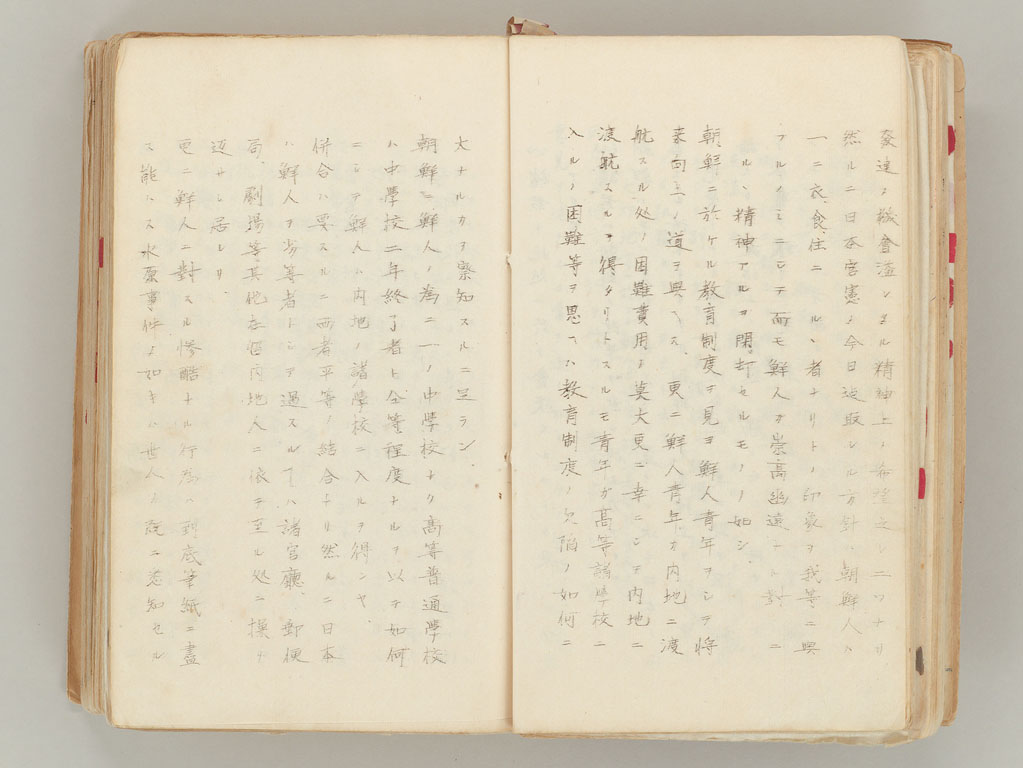 發達ノ機會渣シタル精神上ノ希望之レ二ツナリ
然ルニ日本官憲ノ今日迄取レル方針ハ朝鮮人ハ
一ニ衣、食、住ニ ルヽ者ナリトノ印象ヲ我等ニ與
フルノミニシテ而モ鮮人ガ崇高幽遠ナル 對 ニ
ルヽ精神アルヲ閉封セルモノノ如シ
朝鮮ニ於ケル教育制度ヲ見ヨ鮮人青年ヲシテ將
来向上ノ道ヲ與ヘス、更ニ鮮人青年ガ内地ニ渡
航スル処ノ困難費用ノ莫大更ニ幸ニシテ内地ニ
渡航スルヲ得タリトスルモ青年ガ高等諸學校ニ
入ルノ困難等ヲ思ヘハ教育制度ノ欠陥ノ如何ニ
大ナルカヲ察知スルニ足ラン
朝鮮ニ鮮人ノ為ニ一ノ中學校ナク高等普通學校
ハ中學校二年終了者ト仝等程度ナルヲ以テ如何
ニシテ鮮人ハ内地ノ諸學校ニ入ルヲ得ンヤ
併合ハ要スルニ両者平等ノ結合ナリ然ルニ日本
ハ鮮人ヲ劣等者トシテ遇スル ハ諸官廳、郵便
局、劇場等其他在住内地人ニ依テ至ル処ニ操ナ
返サレ居レリ
更ニ鮮人ニ對スル慘酷ナル行為ハ到底筆紙ニ盡
ス能ハス水原事件ノ如キハ世人ノ既ニ悉知セル